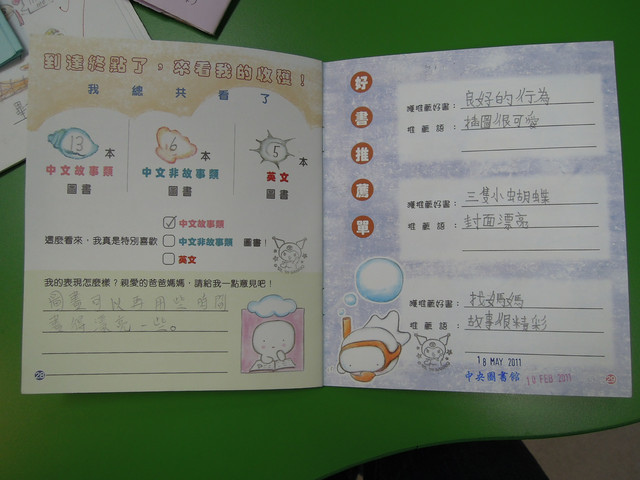 到達終點了，來看我的收穫！
我總共看了
13 本
中文故事類
圖書
6 本
中文非故事類
圖書
5 本
英文
圖書
這麼看來，我真是特別喜歡
中文故事類
中文非故事類
英文
圖書！
我的表現怎麼樣？親愛的爸爸媽媽，請給我一點意見吧！
圖畫可以再用些時間
畫得漂亮一些。
28
好書推薦單
獲推薦好書：良好的行為
推薦語：插圖很可愛
獲推薦好書：三隻小虫胡蝶
推薦語：封面漂亮
獲推薦好書：找媽媽
推薦語：故事很精彩
18 MAY 2011
中央圖書館
10 FEB 2011
29